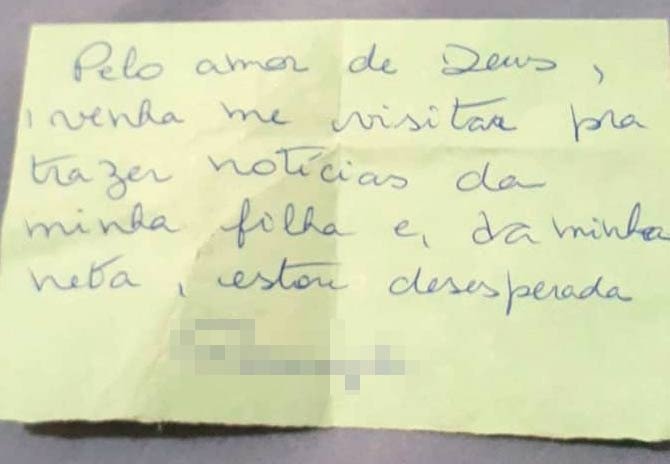 Pelo amor de Deus,
venha me visitar pra
trazer notícias da
minha filha e, da minha
neta, estou desesperada